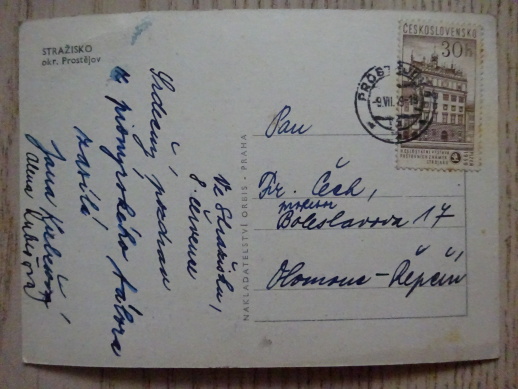 STRAŽISKO
okr. Prostějov
Ve Stražisku,
8. července
Srdečný pozdrav
z pionýrského tábora
zasílá
Jana
Alena
NAKLADATELSTVÍ ORBIS - PRAHA
ČESKOSLOVENSKO
30 h
PROSTĚJOV
-9.VII.
Pan
Dr. Čech,
Boleslavova 17
Olomouc-Řepčín